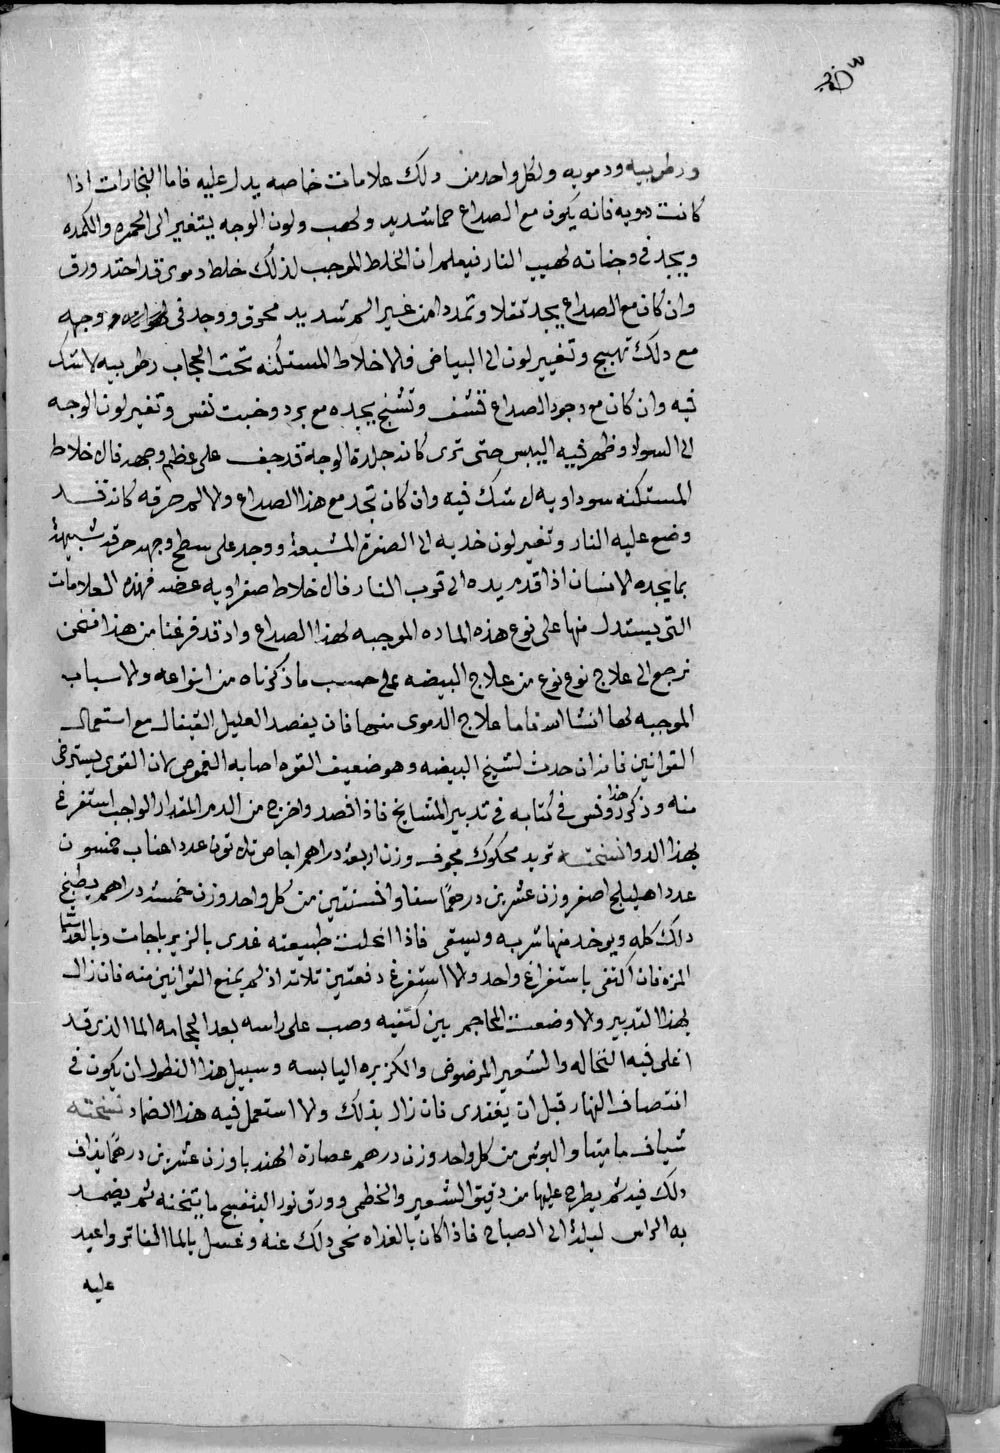 ورطوبيه ودمويه ولكل واحد من دلك علامات خاصه يدل عليه فاما البخارات اذا
كانت دمويه فانه يكون مع الصداع حما شديد ولهب ولون الوجه يتغير الى الحمره والكمده
ويجد في وجناته لهيب النار فيعلم ان الخلط الموجب لذلك خلط دموى قد احتد ورق
وان كان مع الصداع يجد ثقلا وتمددا من غير الم شديد محرق ووجد في وجهه
مع دلك تهبج وتغيير لون الى البياض فالاخلاط المستكنه تحت الحجاب رطوبيه لا شك
فيه وان كان مع وجود الصداع تقشف وتشنج يجده مع برد وخبث نفس وتغير لون الوجه
الى السواد وظهر فيه اليبس حتى ترى كان جلدة الوجه قد جف على عظم وجهه فالاخلاط
المستكنه سوداويه لا شك فيه وان كان تجد مع هذا الصداع والالم حرقه كانه قد
وضع عليه النار وتغير لون خديه الى الصفرة المشبعة ووجد على سطح وجهه حرقه شبيهة
بما يجده الانسان اذا قدم يده الى قرب النار فالاخلاط صفراويه عضه فهذه العلامات
التى يستدل منها على نوع هذه الماده الموجبه لهذا الصداع واد قد فرغنا من هذا فنحن
نرجع الى علاج نوع نوع من علاج البيضه على حسب ما ذكرناه من انواعه والاسباب
الموجبه لها انشا الله فاما علاج الدموى منها فان يفصد العليل القيفال مع استعمال
القوانين فانه ان حدث لشيخ البيضه وهو ضعيف القوه اصابه الغموص لان القوى يسترخى
منه وذكر هذا روفس في كتابه في تدبير المشايخ فاذا فصد واخرج من الدم المقدار الواجب استفرغ
بهذا الدوا نسخته تربد محكوك مجوف وزن اربعة دراهم اجاص ثلاثون عددا عناب خمسون
عددا هليلج اصفر وزن عشرين درهما سنا وافسنتين من كل واحد وزن خمسة دراهم يطبخ
دلك كله ويوخد منها شربه ويسقى فاذا انحلت طبيعته غدى بالزيرباجات وبالعدسيا
المزه فان اكتفى باستفراغ واحد والا استفرغ دفعتين ثلاثه اذ لم يمنع القوانين منه فان زال
بهذا التدبير والا وضعت المحاجم بين كتفيه وصب على راسه بعد الحجامه الما الذى قد
اغلى فيه النخاله والشعير المرضوض والكزبره اليابسه وسبيل هذا النطول ان يكون في
انتصاف النهار قبل ان يغتدى فان زال بذلك والا استعمل فيه هذا الضماد نسخته
شياف ماميثا والبوش من كل واحد وزن درهم عصارة الهندبا وزن عشرين درهما يذاف
دلك فيه ثم يطرح عليها من دقيق الشعير والخطمى وورق نور البنفسج ما يثخنه ثم يضمد
به الراس ليلة الى الصباح فاذا كان بالغداه نحى دلك عنه وغسل بالما الفاتر واعيد
عليه